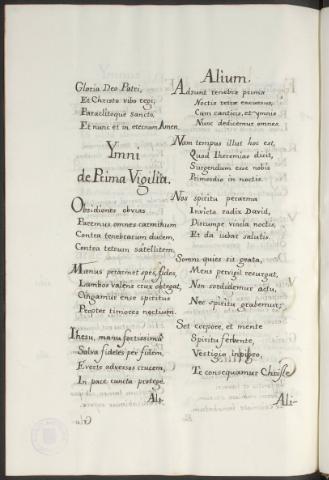 Gloria Deo Patri,
Et Christo vibo regi,
Paraclitoque Sancto,
Et nunc et in eternum Amen.
Ymni
de Prima Vigilia.
Obsidiones obvias
Facemus omnes carminum
Contra tenebrarum ducem,
Contra tetrum satellitem.
Manus peraremet spes, fides,
Lumbos valens crux obtegat,
Cingamur ense spiritus
Propter timores noctium.
Ihesu, manu fortissima
Salva fideles per fidem,
Everte adversos crucem,
In pace cuncta protege.
Ali-
Alium.
Adsunt tenebre prime
Noctis retro excursus,
Cum canticis, et ymnis
Nunc dedicemus omnes.
Nam tempus illut hoc est,
Quod Iheremias dicit,
Surgendum esse nobis
Primordio in noctis.
Nos spiritu perarma
Invicta radix David,
Disrumpe vincla noctis,
Et da iubar salutis.
Somni quies sit grata,
Mens pervigil resurgat,
Non sordidemur actu,
Nec spiritu grabemur;
Set corpore, et mente
Spiritu fervente,
Vestigio in primo,
Te consequamur Christe
Ali-